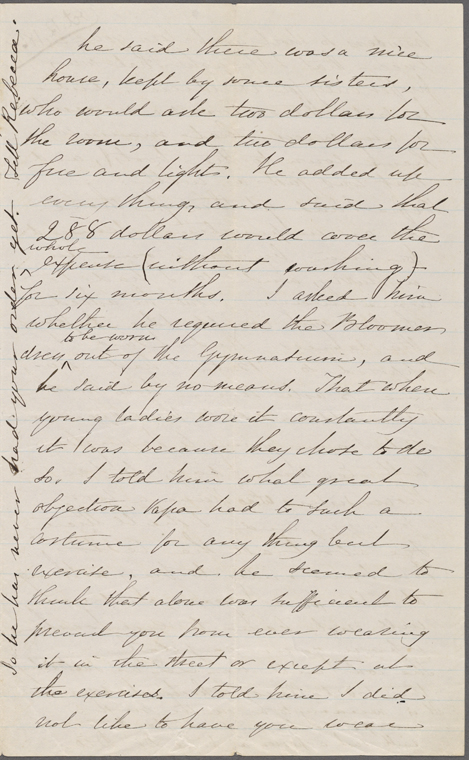 he said there was a nice
house, kept by some sisters,
who would ask two dollars for
the room, and two dollars for
fire and lights. He added up
every thing, and said that
288 dollars would cover the
whole
expense (without washing)
for six months. I asked him
whether he required the Bloomer
to be worn
dress, out of the Gymnasium, and
he said by no means. That when
young ladies wore it constantly
it was because they chose to do
so. I told him what great
objection Papa had to such a
costume for any thing but
exercise, and he seemed to
think that alone was sufficient to
prevent you from ever wearing
it in the street or except at
the exercises. I told him I did
not like to have you wear
So he has never had your order yet. Tell Rebecca.